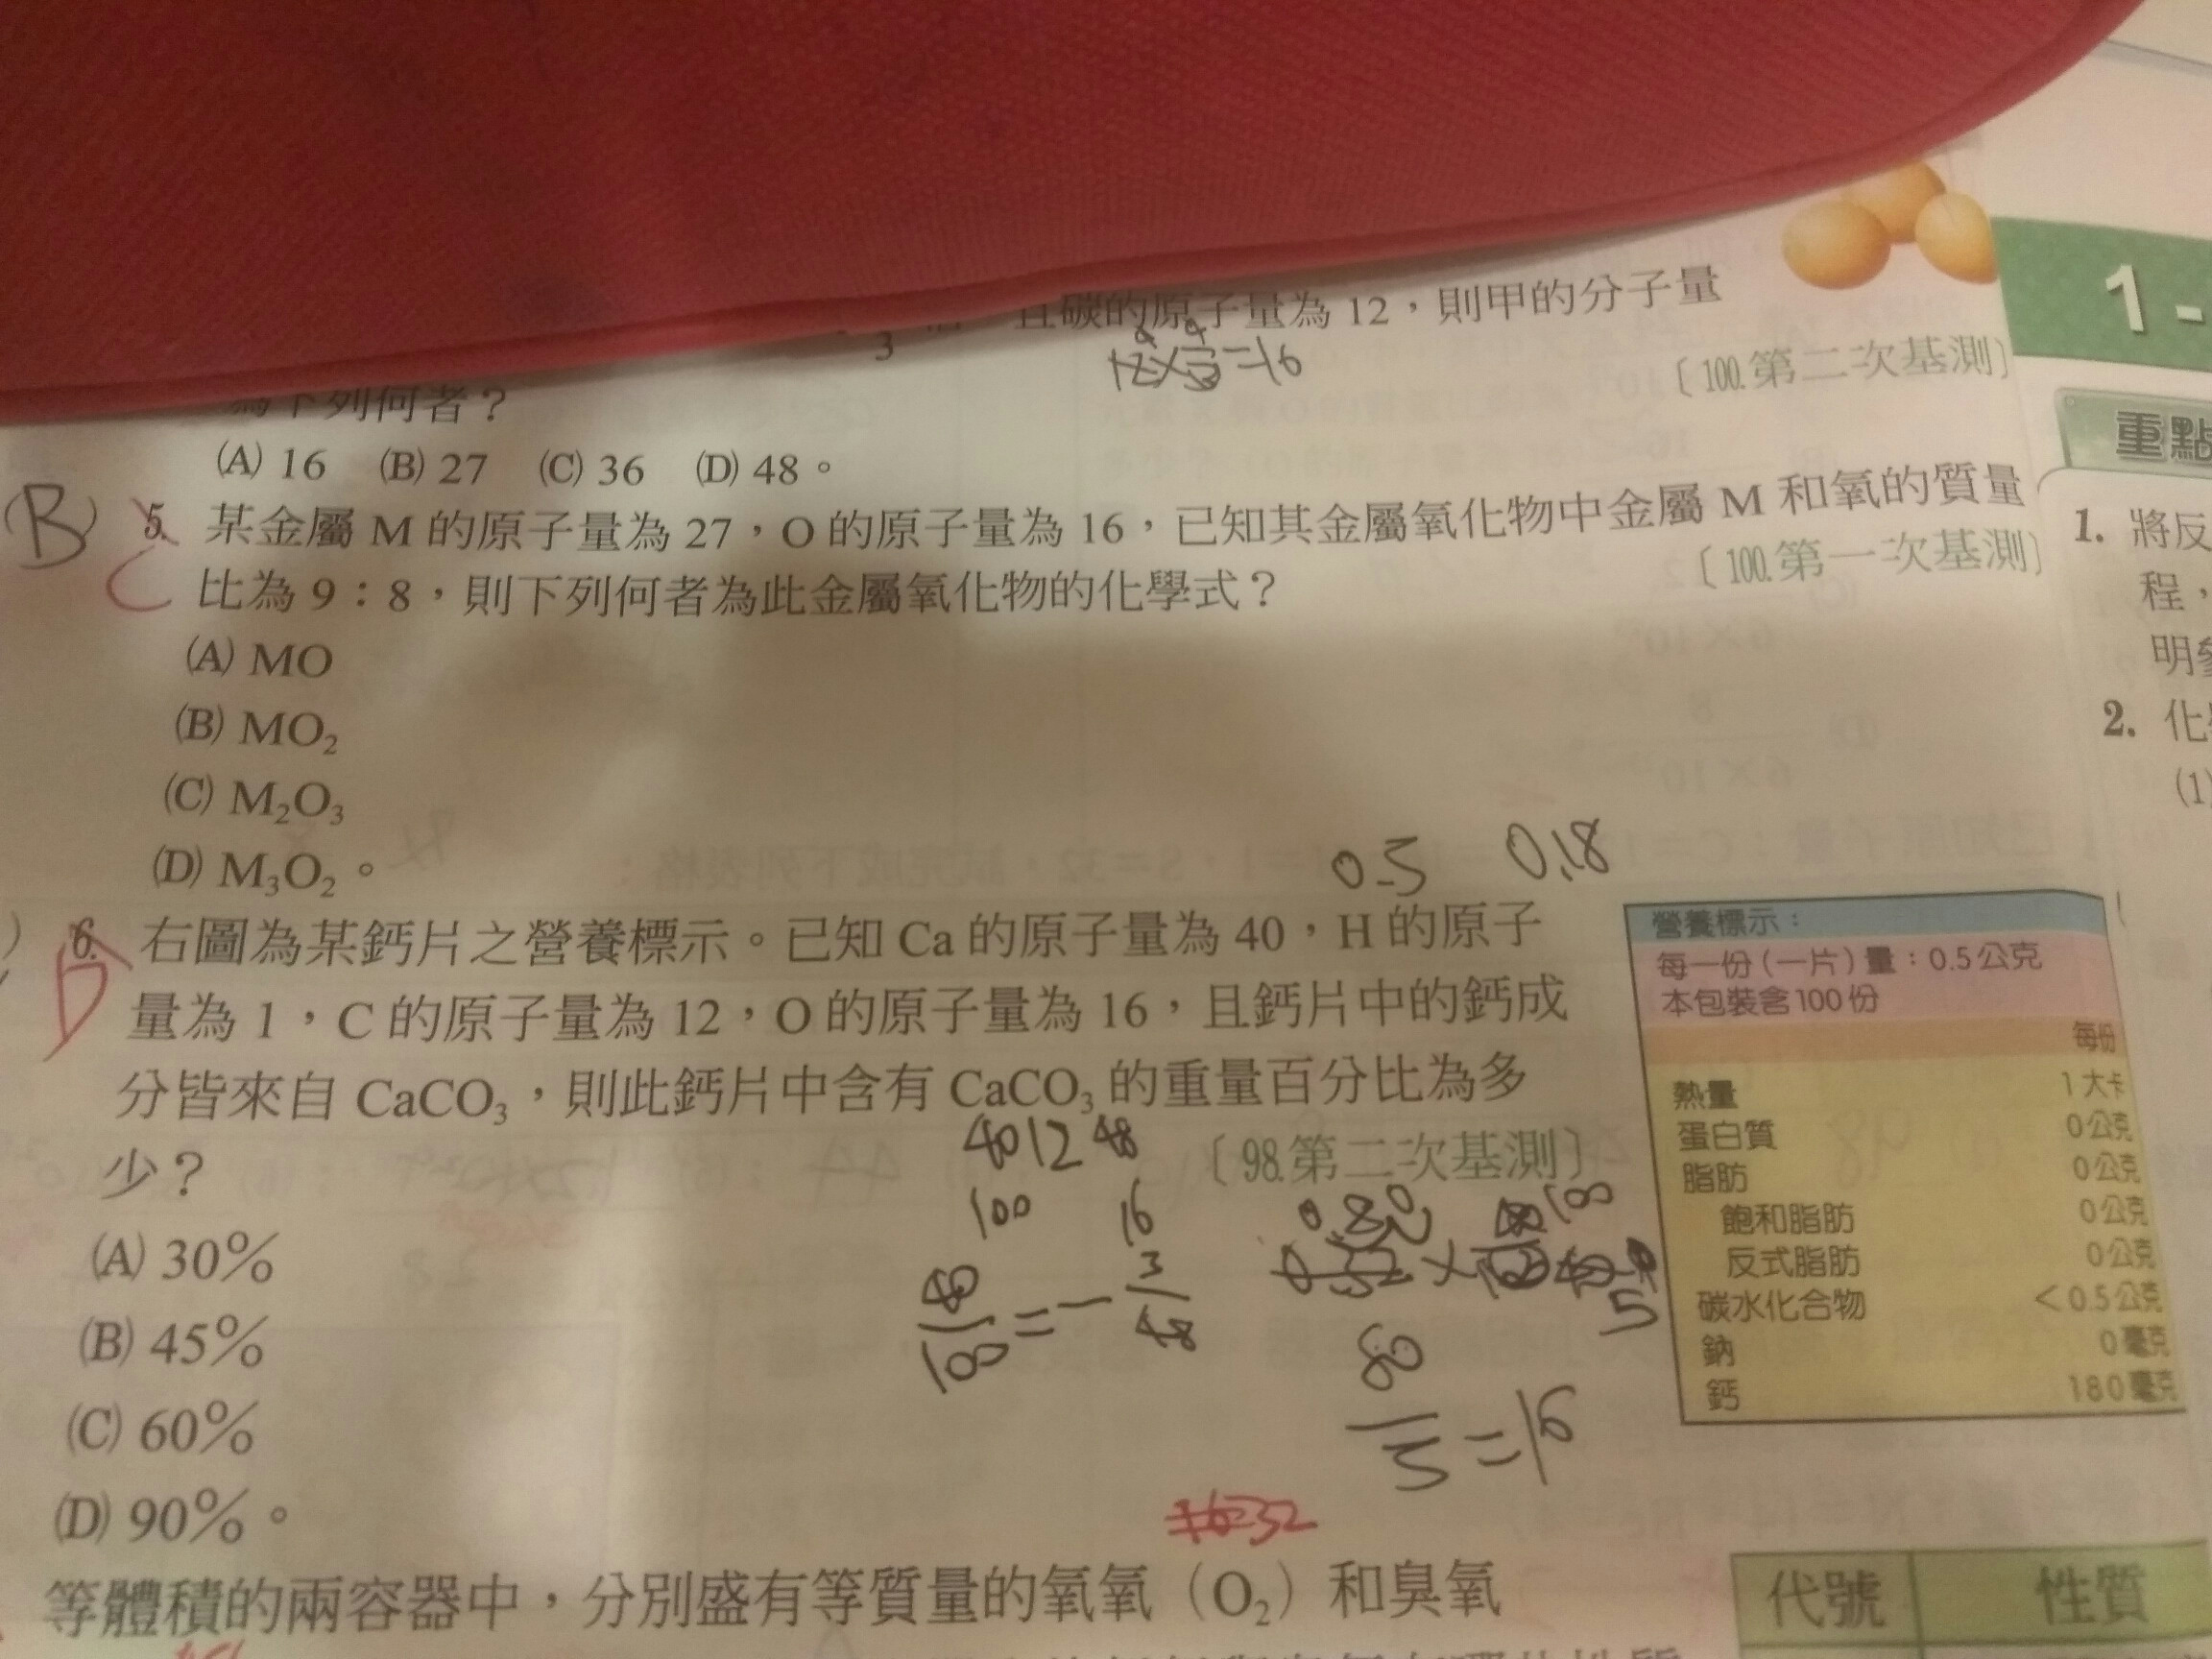 且碳的原子量為 12，則甲的分子量
3
12×4/3=16
〔100.第二次基測〕
為下列何者？
(A) 16 (B) 27 (C) 36 (D) 48。
(B) 5. 某金屬 M 的原子量為 27，O 的原子量為 16，已知其金屬氧化物中金屬 M 和氧的質量
C 比為 9：8，則下列何者為此金屬氧化物的化學式？
〔100.第一次基測〕
(A) MO
(B) MO₂
(C) M₂O₃
(D) M₃O₂。
0.5 0.18
6. 右圖為某鈣片之營養標示。已知 Ca 的原子量為 40，H 的原子
D 量為 1，C 的原子量為 12，O 的原子量為 16，且鈣片中的鈣成
分皆來自 CaCO₃，則此鈣片中含有 CaCO₃ 的重量百分比為多
少？
〔98.第二次基測〕
40 12 48
100 16
3
48
40/100=
80/5=16
(A) 30%
(B) 45%
(C) 60%
(D) 90%。
營養標示：
每一份（一片）量：0.5公克
本包裝含100份
每份
熱量 1大卡
蛋白質 0公克
脂肪 0公克
飽和脂肪 0公克
反式脂肪 0公克
碳水化合物 <0.5公克
鈉 0毫克
鈣 180毫克
32
等體積的兩容器中，分別盛有等質量的氧氣（O₂）和臭氧
代號 性質
1-
重點
1. 將反
程，
明
2. 化
(1)